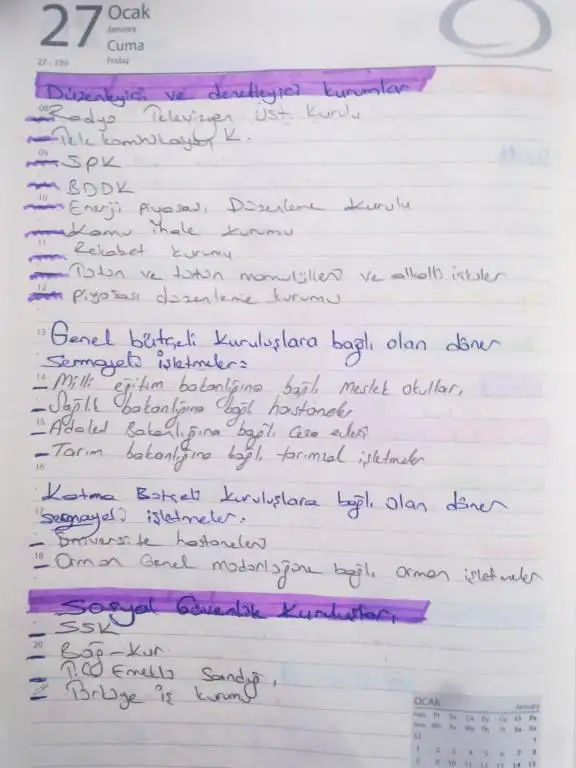 27 Ocak
January
Cuma
Friday
27 - 339
Düzenleyici ve denetleyici kurumlar
08 Radyo Televizyon Üst Kurulu
- Telekomünikasyon K.
09 - SPK
- BDDK
10 - Enerji Piyasası Düzenleme Kurulu
- Kamu ihale kurumu
11 - Rekabet kurumu
- Tütün ve tütün mamulülleri ve alkollü içkiler
12 - piyasası düzenleme kurumu
13 Genel bütçeli kuruluşlara bağlı olan döner
sermayeli işletmeler=
14 - Milli eğitim bakanlığına bağlı Meslek okulları
- Sağlık bakanlığına bağlı hastaneler
15 - Adalet Bakanlığına bağlı ceza evleri
- Tarım bakanlığına bağlı tarımsal işletmeler
16
Katma Bütçeli kuruluşlara bağlı olan döner
17 sermayeli işletmeler.
- Üniversite hastaneleri
18 - Orman Genel müdürlüğüne bağlı orman işletmeler
Sosyal Güvenlik Kuruluşları
- SSK
20 - Bağ-Kur
- T.C Emekli Sandığı
- iş kurumu
OCAK January